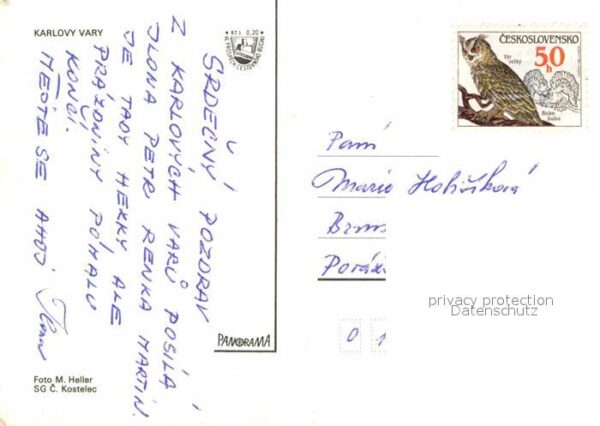 KARLOVY VARY
Kčs 0,20
SRDEČNÝ POZDRAV
Z KARLOVÝCH VARŮ POSÍLÁ
ILONA PETR RENKA MARTIN.
JE TADY HEZKY, ALE
PRÁZDNINY POMALU
KONČÍ.
MĚJTE SE AHOJ
Foto M. Heller
SG Č. Kostelec
PANORAMA
ČESKOSLOVENSKO
Výr velký
50 h
Bubo bubo
Paní
Marie
privacy protection
Datenschutz
0 1